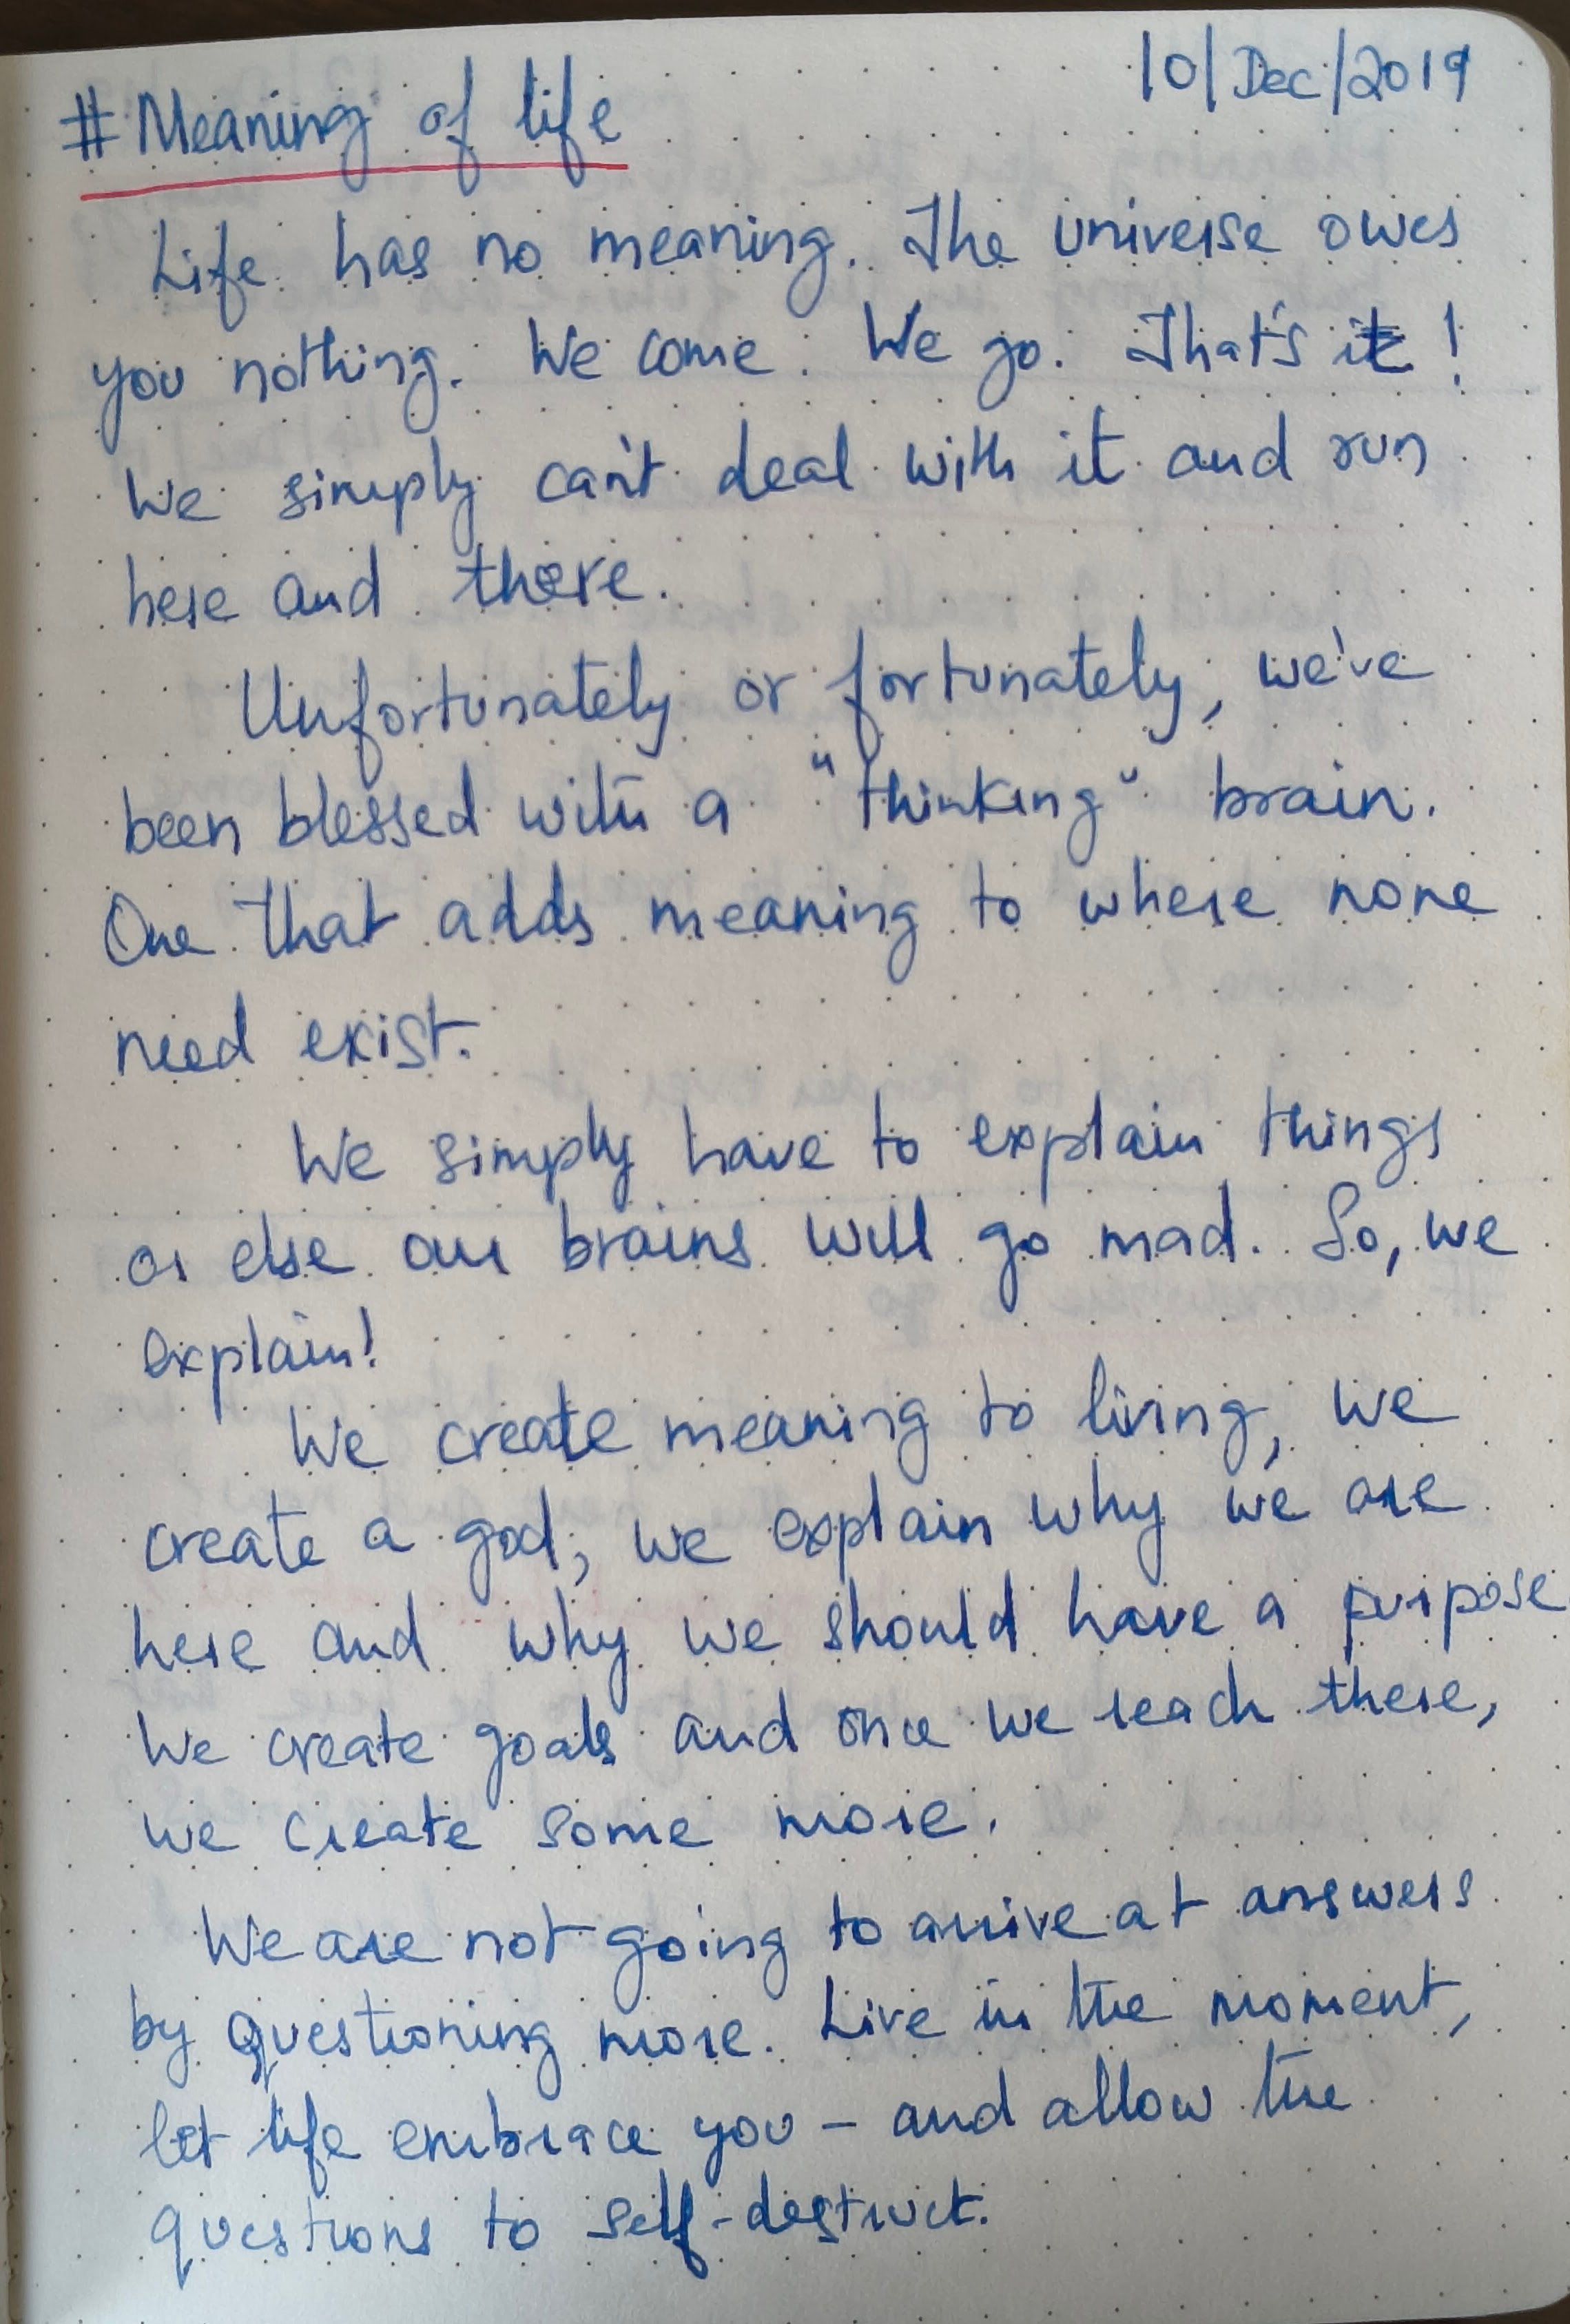 10/Dec/2019
# Meaning of life
Life has no meaning. The universe owes
you nothing. We come. We go. That's it!
We simply can't deal with it and run
here and there.
Unfortunately or fortunately, we've
been blessed with a "thinking" brain.
One that adds meaning to where none
need exist.
We simply have to explain things
or else our brains will go mad. So, we
explain!
We create meaning to living, we
create a god, we explain why we are
here and why we should have a purpose
We create goals and once we reach these,
we create some more.
We are not going to arrive at answers
by questioning more. Live in the moment,
let life embrace you - and allow the
questions to self-destruct.